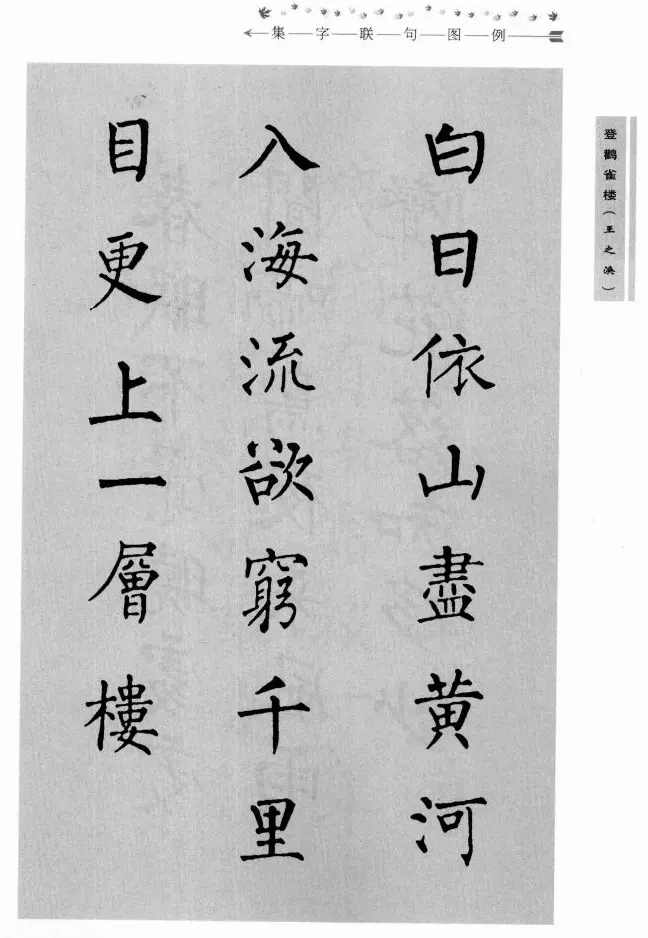 集字联句图例
登鹳雀楼(王之涣)
白日依山盡黄河
入海流欲窮千里
目更上一層樓